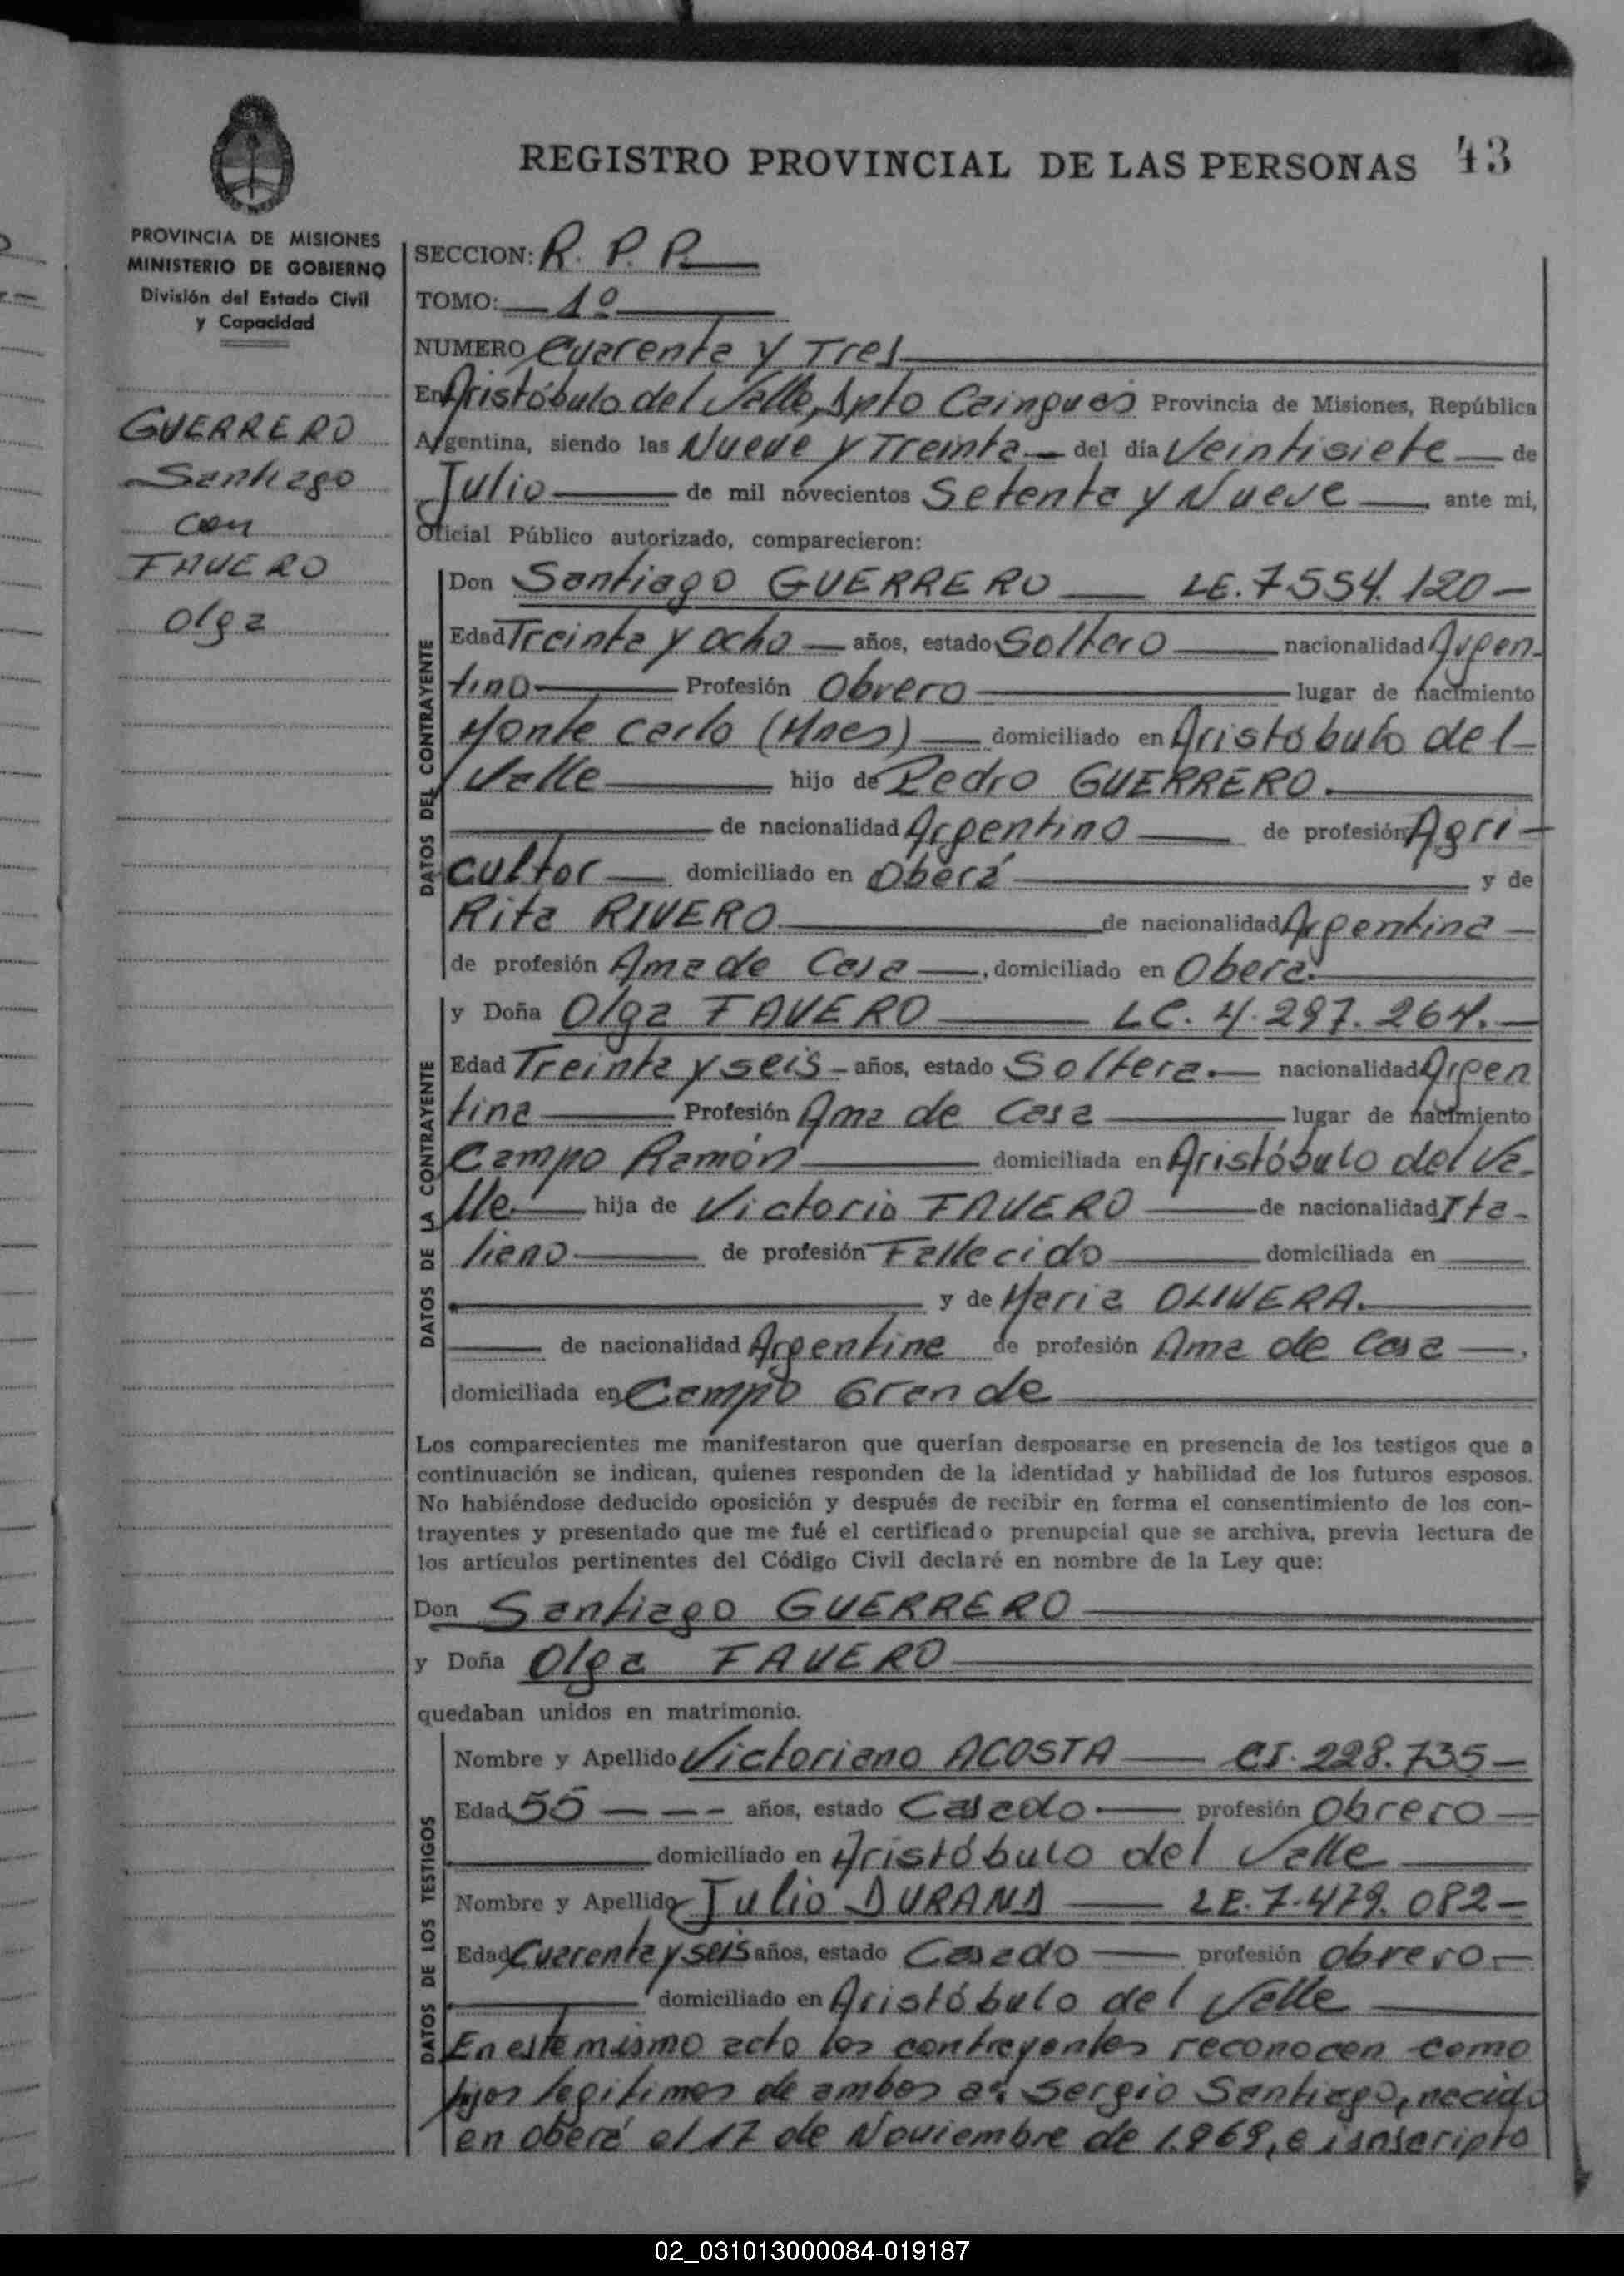 REGISTRO PROVINCIAL DE LAS PERSONAS 43
PROVINCIA DE MISIONES
MINISTERIO DE GOBIERNO
División del Estado Civil
y Capacidad
GUERRERO
Santiago
con
FAVERO
Olga
SECCION: R. P. P.
TOMO: 1º
NUMERO Cuarenta y Tres
En Aristóbulo del Valle, Dpto Cainguás Provincia de Misiones, República
Argentina, siendo las Nueve y Treinta del día Veintisiete de
Julio de mil novecientos Setenta y Nueve ante mi,
Oficial Público autorizado, comparecieron:
DATOS DEL CONTRAYENTE
Don Santiago GUERRERO LE. 7554.120-
Edad Treinta y ocho años, estado Soltero nacionalidad Argen-
tino Profesión Obrero lugar de nacimiento
Monte Carlo (Mnes) domiciliado en Aristóbulo del
Valle hijo de Pedro GUERRERO.
de nacionalidad Argentino de profesión Agri-
cultor domiciliado en Oberá y de
Rita RIVERO de nacionalidad Argentina
de profesión Ama de Casa, domiciliado en Oberá.
DATOS DE LA CONTRAYENTE
y Doña Olga FAVERO LC. 4.297.264.
Edad Treinta y seis años, estado Soltera. nacionalidad Argen
tina Profesión Ama de Casa lugar de nacimiento
Campo Ramón domiciliada en Aristóbulo del Va-
lle. hija de Victorio FAVERO de nacionalidad Ita-
liano de profesión Fallecido domiciliada en
y de Maria OLIVERA.
de nacionalidad Argentina de profesión Ama de Casa,
domiciliada en Campo Grande
Los comparecientes me manifestaron que querían desposarse en presencia de los testigos que a
continuación se indican, quienes responden de la identidad y habilidad de los futuros esposos.
No habiéndose deducido oposición y después de recibir en forma el consentimiento de los con-
trayentes y presentado que me fué el certificado prenupcial que se archiva, previa lectura de
los artículos pertinentes del Código Civil declaré en nombre de la Ley que:
Don Santiago GUERRERO
y Doña Olga FAVERO
quedaban unidos en matrimonio.
DATOS DE LOS TESTIGOS
Nombre y Apellido Victoriano ACOSTA CI. 228.735-
Edad 55 años, estado Casado profesión Obrero
domiciliado en Aristóbulo del Valle
Nombre y Apellido Julio DURAND LE. 7.479.082-
Edad Cuarenta y seis años, estado Casado profesión obrero
domiciliado en Aristóbulo del Valle
En este mismo acto los contrayentes reconocen como
hijos legítimos de ambos a: Sergio Santiago, nacido
en oberá el 17 de Noviembre de 1.969, e isnscripto
02_031013000084-019187